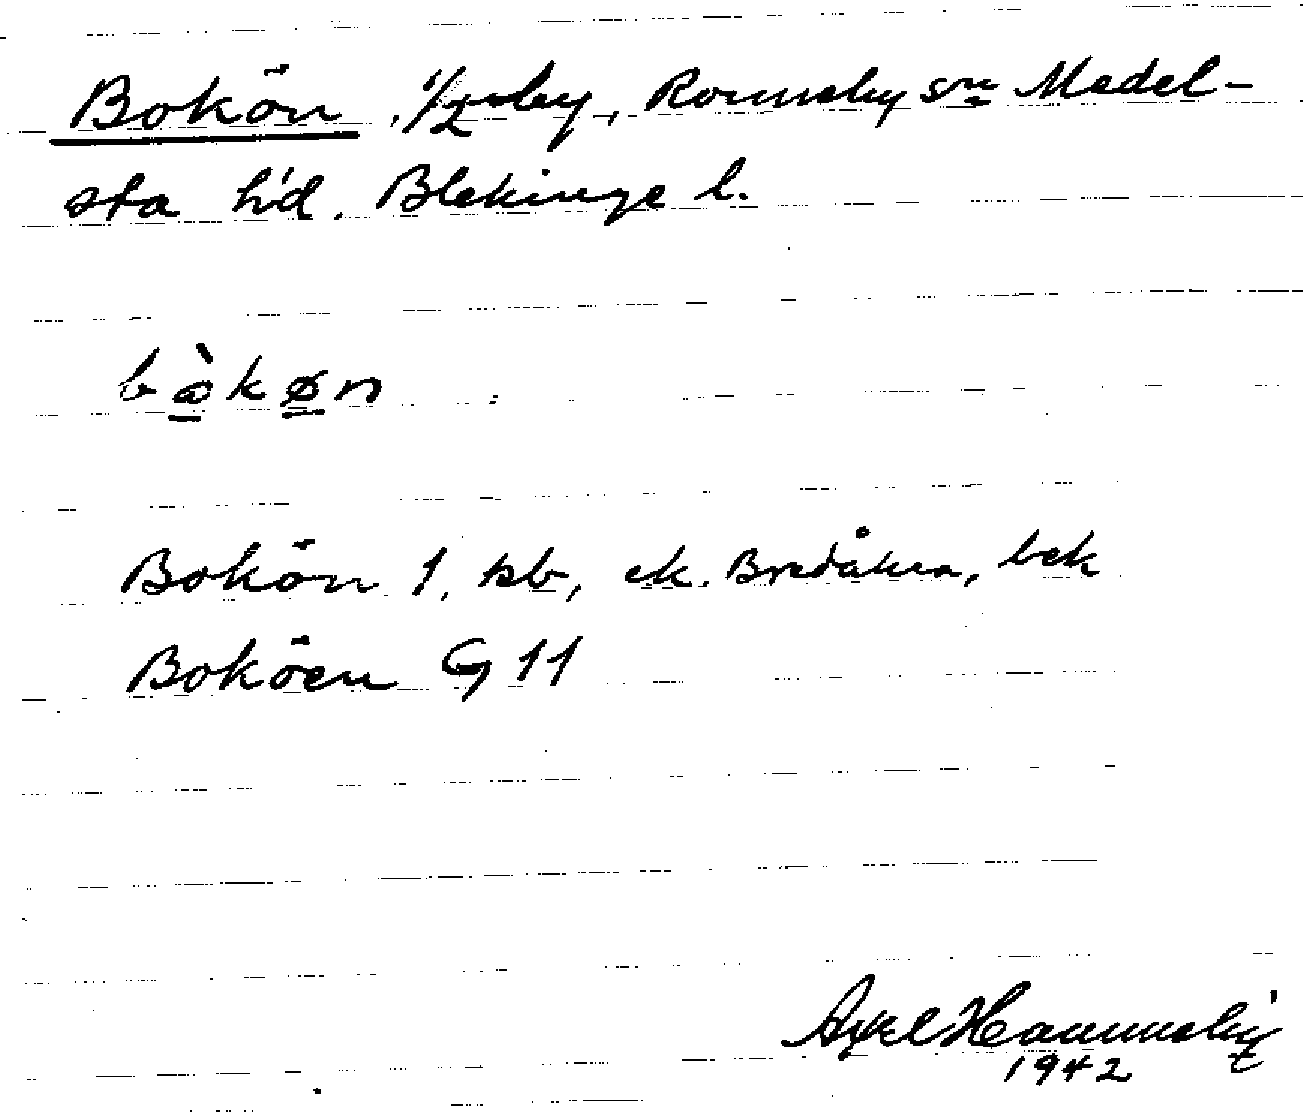 Bokön, 1/2 by, Ronneby sn Medel-
sta hd. Blekinge l.
bàkøn
Bokön 1, sb, ek. Bredåkra, bek
Boköen G 11
Axel Hammeby
1942